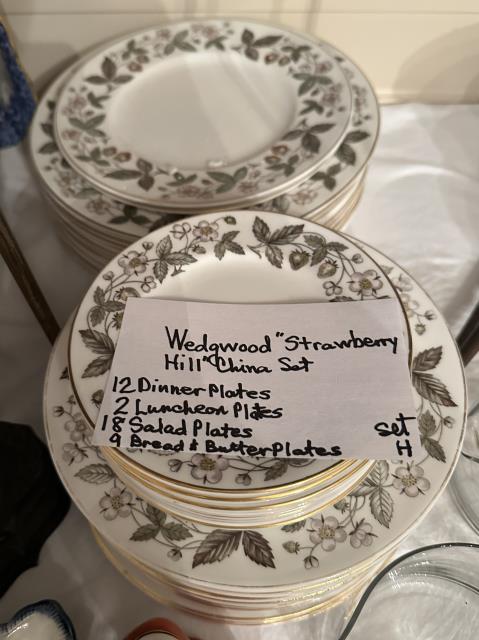 Wedgwood "Strawberry
Hill" China Set
12 Dinner Plates
2 Luncheon Plates
18 Salad Plates
9 Bread & Butter Plates
Set
H